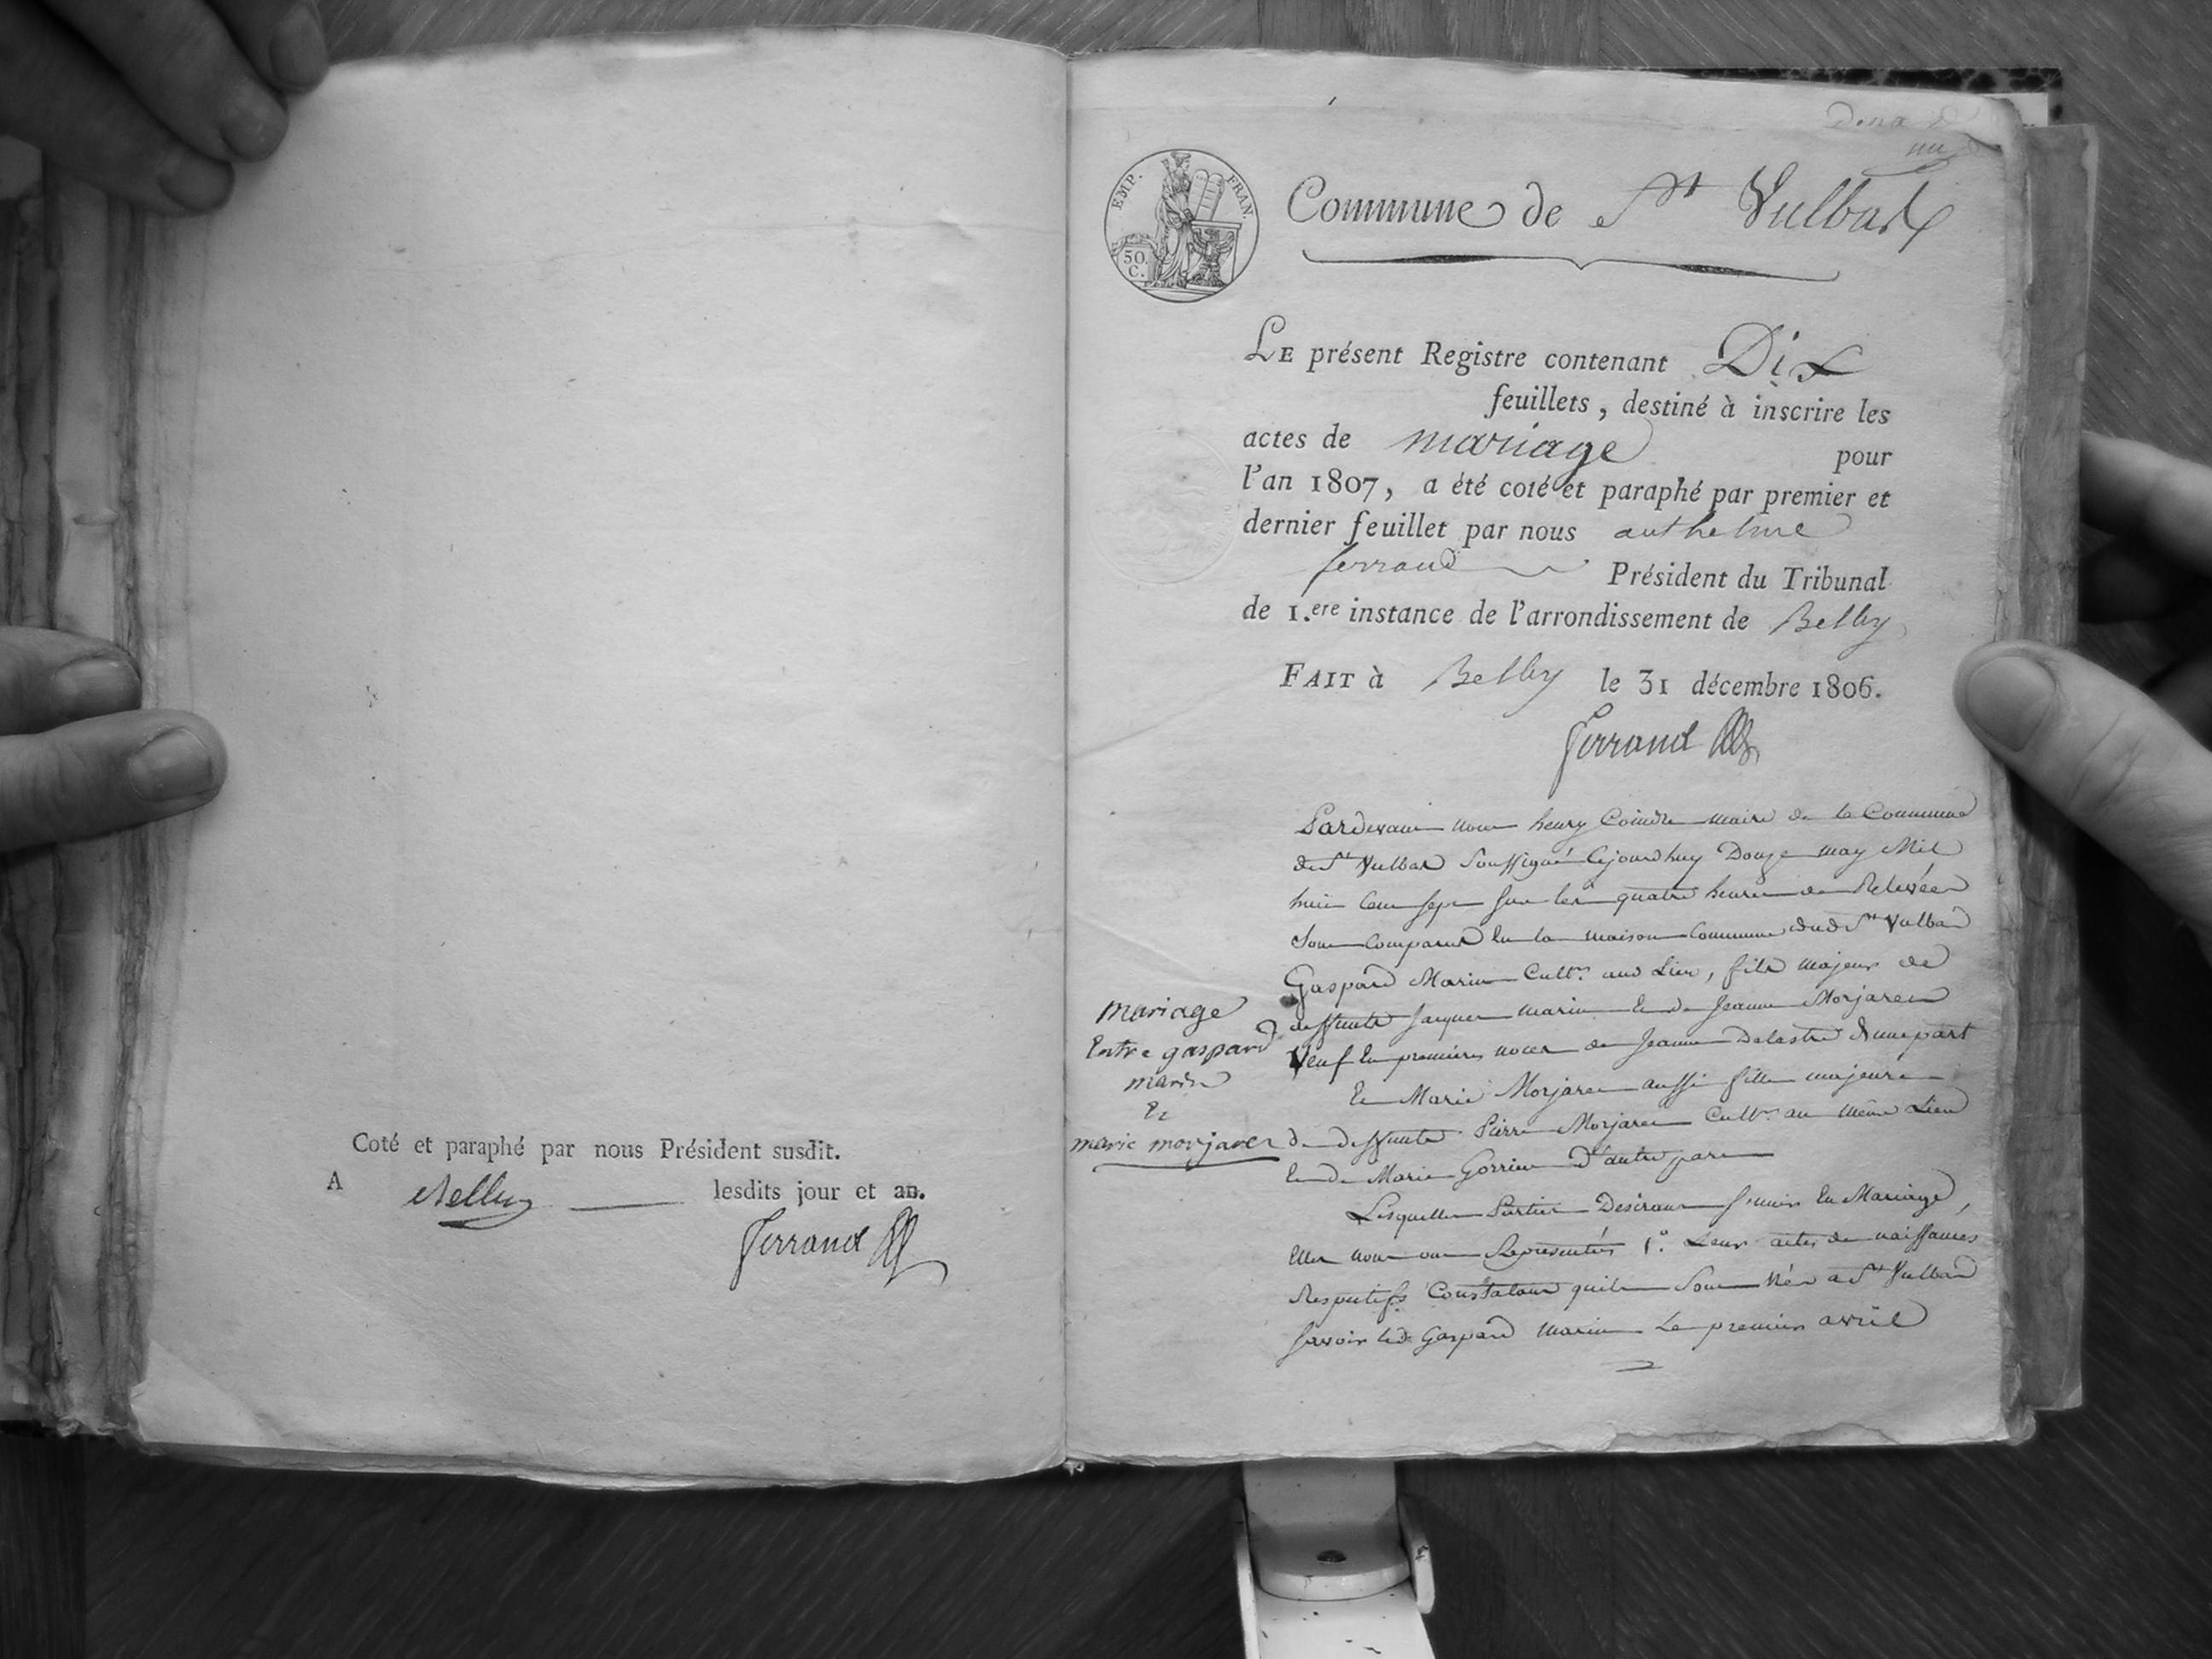 Coté et paraphé par nous Président susdit.
A Belley lesdits jour et an.
Ferrand
EMP. FRAN.
50.
C.
Commune de St Vulbas
LE présent Registre contenant Dix
feuillets, destiné à inscrire les
actes de mariage pour
l'an 1807, a été coté et paraphé par premier et
dernier feuillet par nous anthelme
ferrand Président du Tribunal
de 1.ere instance de l'arrondissement de Belley
FAIT à Belley le 31 décembre 1806.
Ferrand
mariage
Entre gaspard
marin
Et
marie morjaret
Pardevant nous henry Coindre maire de la Commune
de St Vulbas Soussigné Cejourdhuy Douze may Mil
huit Cent sept sur les quatre heures de Relevées
Sont Comparus En la maison Commune dud St Vulbas
Gaspard Marin Cultr. aud Lieu, fils majeur de
deffunts Jacques marin Et de Jeanne Morjaret
Veuf En premières noces de Jeanne Delastre d'une part
Et Marie Morjaret aussi fille majeure
de deffunts Pierre Morjaret Cultr. au même Lieu
Et de Marie Gorrin d'autre part
Lesquelles Parties Desirant s'unir En Mariage,
Elles nous ont Représentés 1.° Leurs actes de naissances
Respectifs Constatant quils Sont Nés a St Vulbas
Savoir led. Gaspard Marin Le premier avril